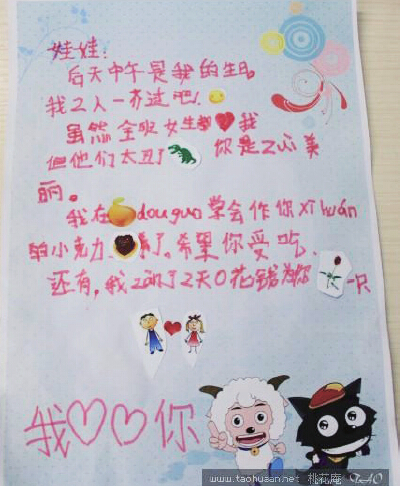 娃娃:
后天中午是我的生日,
我2人一齐过吧!
虽然全班女生都 我
但他们太丑了 你是zui美
丽。
我在 douguo学会作你xǐhuān
的小 克力 了。希望你爱吃.
还有,我 了2天0花钱为你 一只
我♡♡你
www.taohuaan.net 桃花庵 TAO